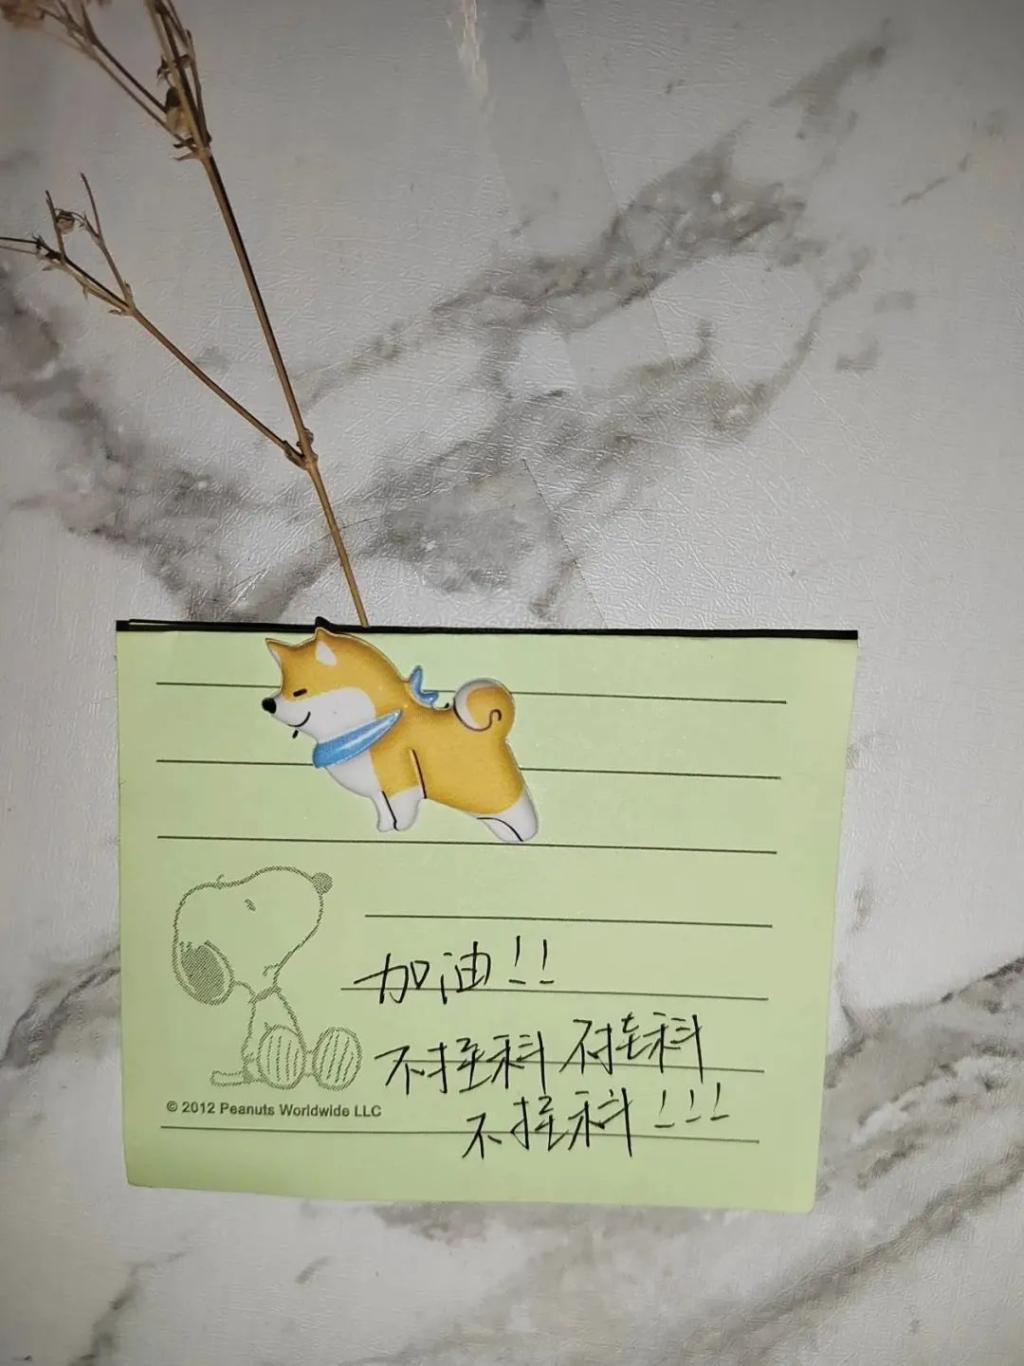 加油!!
不挂科 不挂科
© 2012 Peanuts Worldwide LLC
不挂科!!!